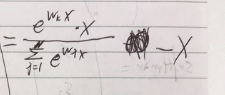 = \frac{e^{w_k x} \cdot x}{\sum_{j=1}^{N} e^{w_j x}} - x